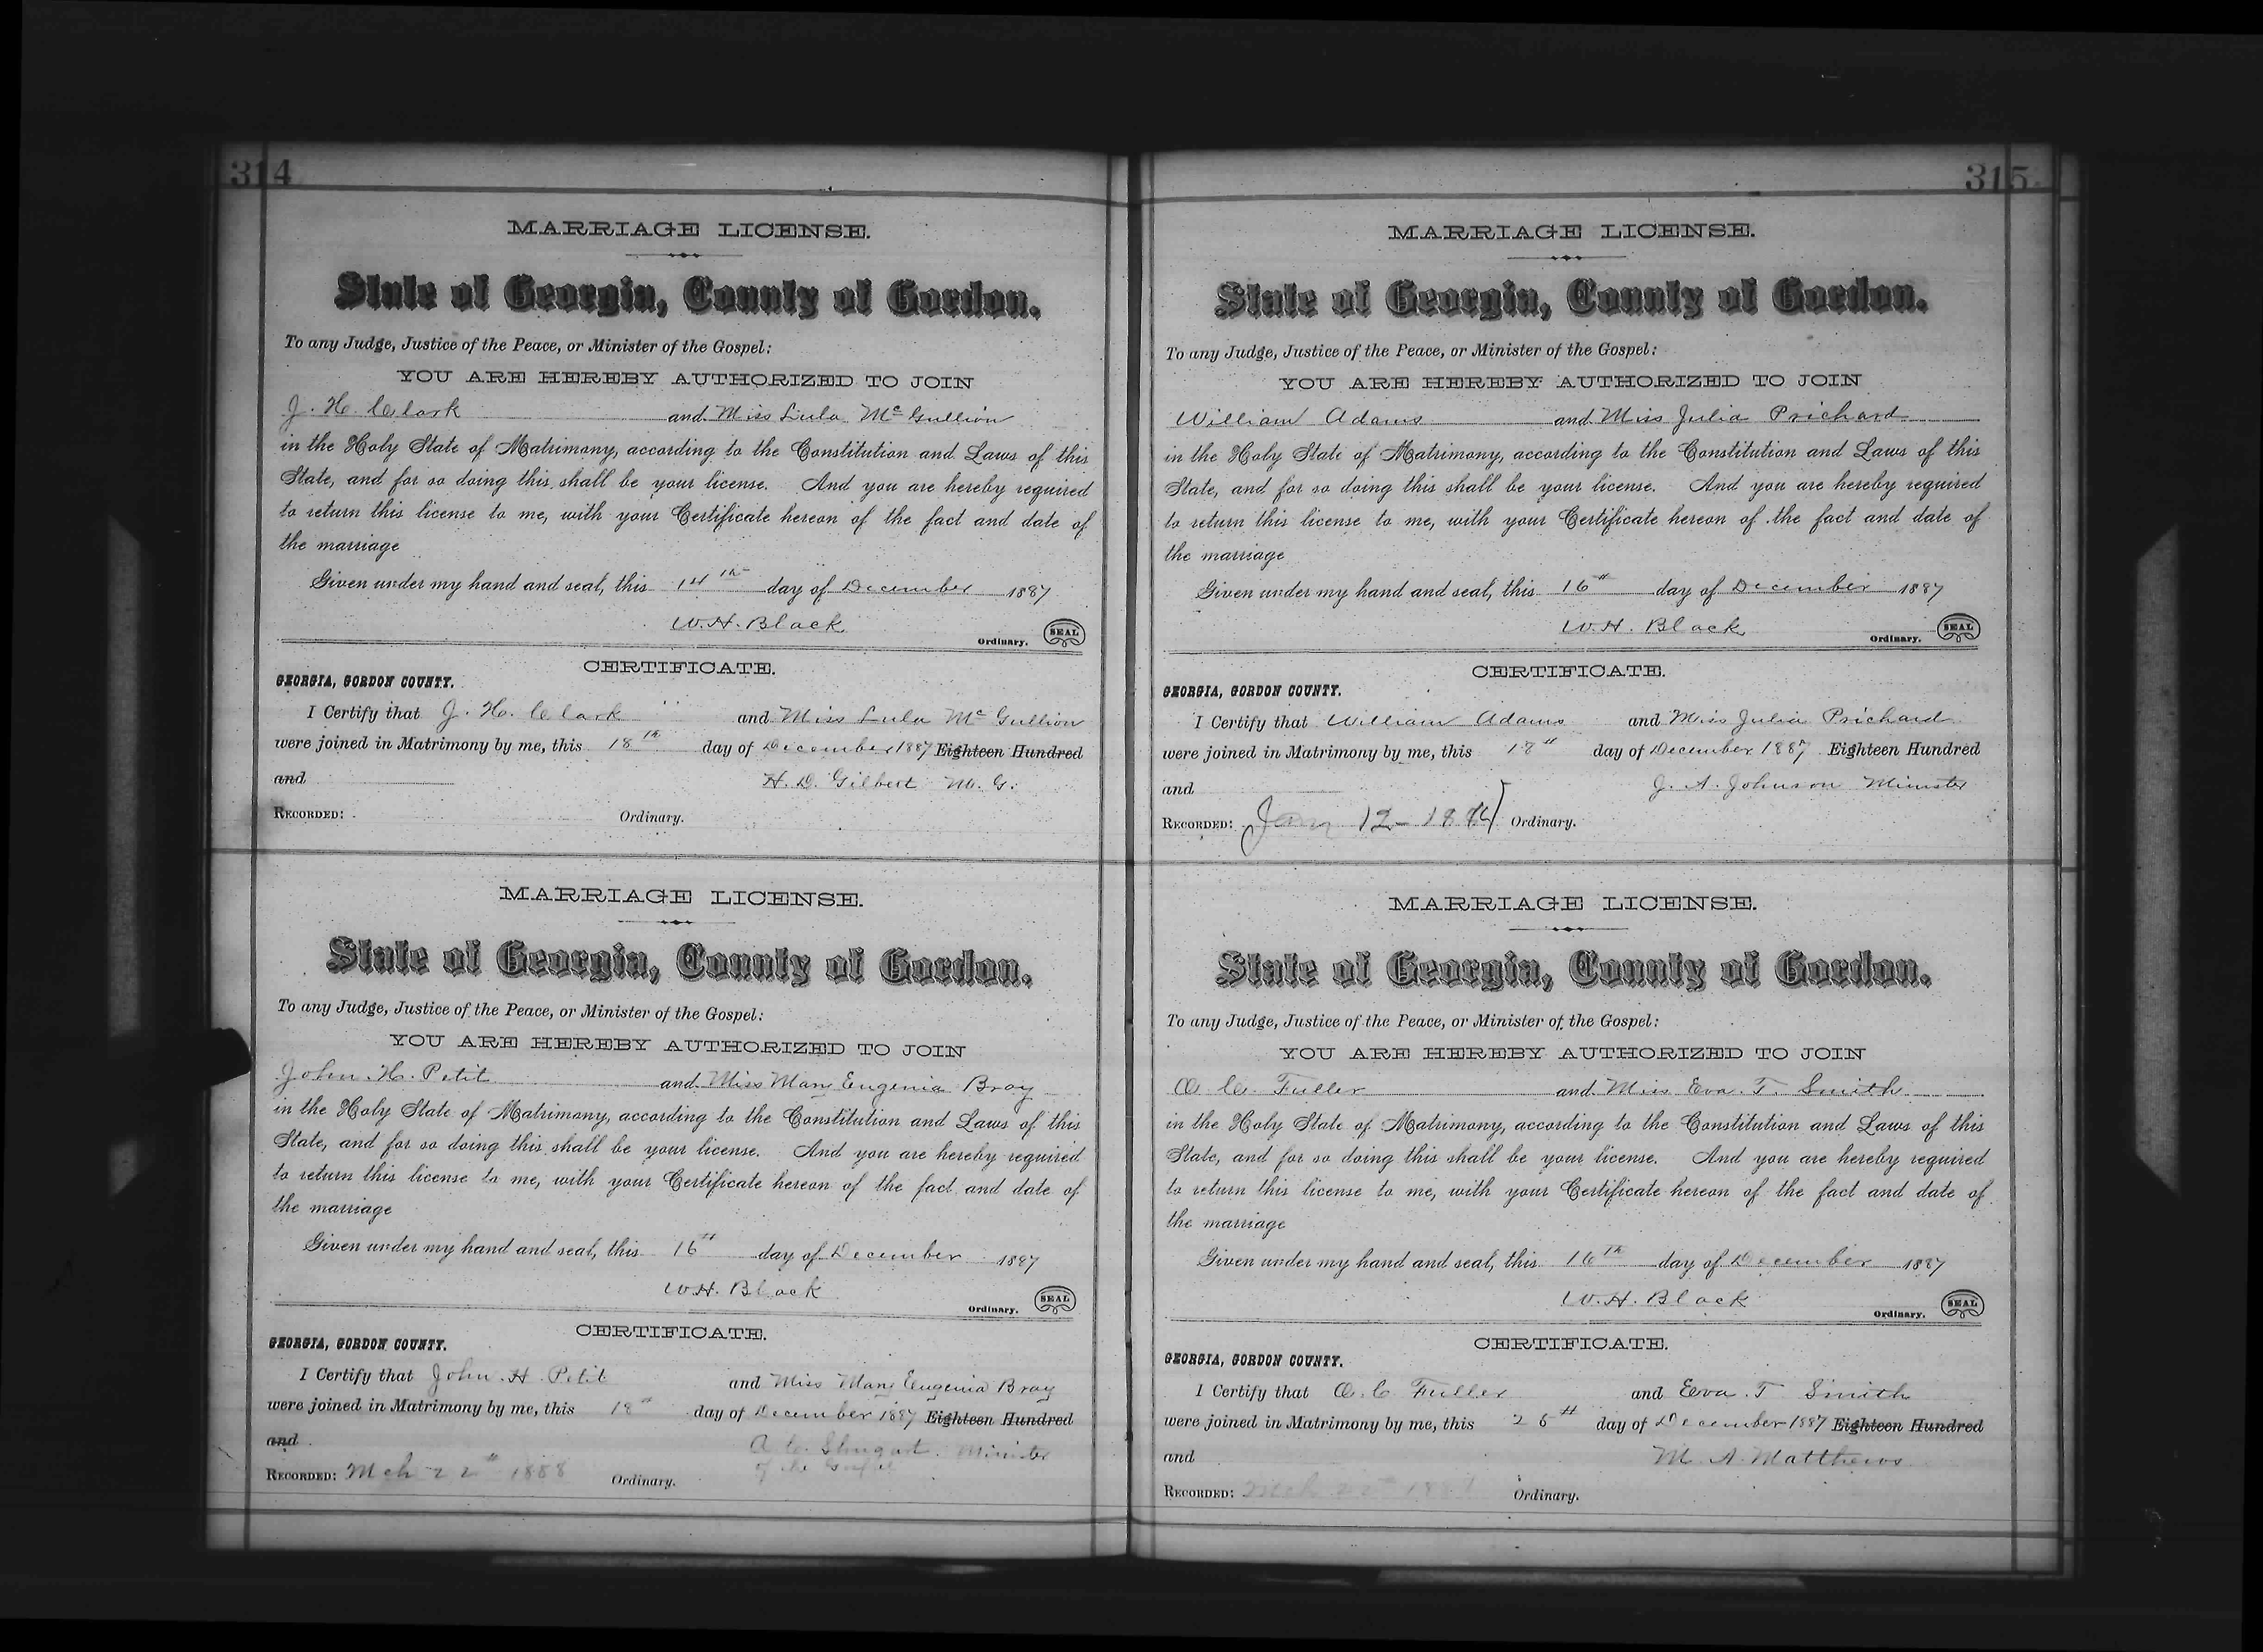 314
MARRIAGE LICENSE.
State of Georgia, County of Gordon.
To any Judge, Justice of the Peace, or Minister of the Gospel:
YOU ARE HEREBY AUTHORIZED TO JOIN
J. H. Clark and Miss Lula McGullion
in the Holy State of Matrimony, according to the Constitution and Laws of this
State, and for so doing this shall be your license. And you are hereby required
to return this license to me, with your Certificate hereon of the fact and date of
the marriage
Given under my hand and seal, this 14th day of December 1887
W. H. Black
Ordinary. SEAL
CERTIFICATE.
GEORGIA, GORDON COUNTY.
I Certify that J. H. Clark and Miss Lula McGullion
were joined in Matrimony by me, this 18th day of December 1887 Eighteen Hundred
and H. D. Gilbert M. G.
RECORDED: Ordinary.
MARRIAGE LICENSE.
State of Georgia, County of Gordon.
To any Judge, Justice of the Peace, or Minister of the Gospel:
YOU ARE HEREBY AUTHORIZED TO JOIN
John H. Petit and Miss Mary Eugenia Bray
in the Holy State of Matrimony, according to the Constitution and Laws of this
State, and for so doing this shall be your license. And you are hereby required
to return this license to me, with your Certificate hereon of the fact and date of
the marriage
Given under my hand and seal, this 16th day of December 1887
W. H. Black
Ordinary. SEAL
CERTIFICATE.
GEORGIA, GORDON COUNTY.
I Certify that John H. Petit and Miss Mary Eugenia Bray
were joined in Matrimony by me, this 18th day of December 1887 Eighteen Hundred
and A. C. Shugart. Minister
of the Gospel
RECORDED: Mch 22th 1888 Ordinary.
315
MARRIAGE LICENSE.
State of Georgia, County of Gordon.
To any Judge, Justice of the Peace, or Minister of the Gospel:
YOU ARE HEREBY AUTHORIZED TO JOIN
William Adams and Miss Julia Prichard
in the Holy State of Matrimony, according to the Constitution and Laws of this
State, and for so doing this shall be your license. And you are hereby required
to return this license to me, with your Certificate hereon of the fact and date of
the marriage
Given under my hand and seal, this 16th day of December 1887
W. H. Black
Ordinary. SEAL
CERTIFICATE.
GEORGIA, GORDON COUNTY.
I Certify that William Adams and Miss Julia Prichard
were joined in Matrimony by me, this 18th day of December 1887 Eighteen Hundred
and J. A. Johnson Minister
RECORDED: Jany 12 - Ordinary.
MARRIAGE LICENSE.
State of Georgia, County of Gordon.
To any Judge, Justice of the Peace, or Minister of the Gospel:
YOU ARE HEREBY AUTHORIZED TO JOIN
C. Fuller and Miss Eva T. Smith
in the Holy State of Matrimony, according to the Constitution and Laws of this
State, and for so doing this shall be your license. And you are hereby required
to return this license to me, with your Certificate hereon of the fact and date of
the marriage
Given under my hand and seal, this 16th day of December 1887
W. H. Black
Ordinary. SEAL
CERTIFICATE.
GEORGIA, GORDON COUNTY.
I Certify that C Fuller and Eva T Smith
were joined in Matrimony by me, this day of December 1887 Eighteen Hundred
and M. A. Matthews
RECORDED: Mch Ordinary.